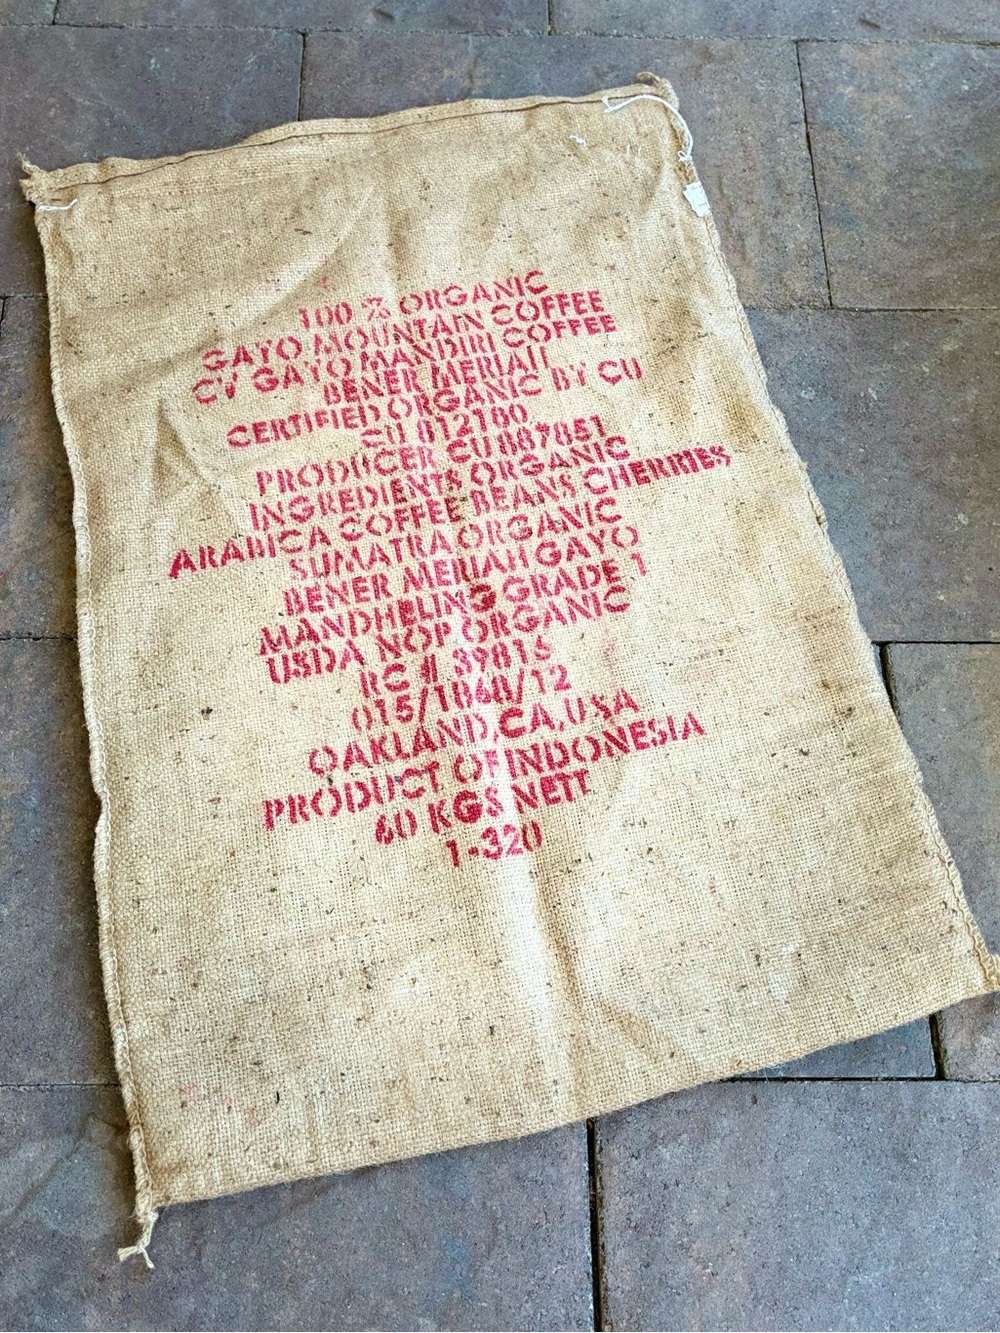 100 % ORGANIC
GAYO MOUNTAIN COFFEE
CV GAYO MANDIRI COFFEE
BENER MERIAH
CERTIFIED ORGANIC BY CU
CU 812180
PRODUCER CU 887851
INGREDIENTS ORGANIC
ARABICA COFFEE BEANS CHERRIES
SUMATRA ORGANIC
BENER MERIAH GAYO
MANDHELING GRADE 1
USDA NOP ORGANIC
RC # 39816
015/1860/12
OAKLAND, CA, USA
PRODUCT OF INDONESIA
60 KGS NETT
1-320